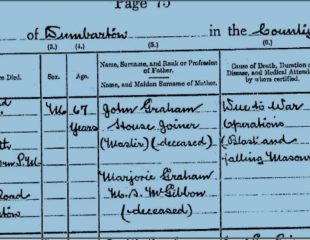 Page 75
of Dumbarton in the County
(3.) (4.) (5.) (6.)
Died. Sex. Age. Name, Surname, and Rank or Profession of Father. Name, and Maiden Surname of Mother. Cause of Death, Duration of Disease, and Medical Attendant by whom certified.
M. 67 Years
John Graham
House Joiner
(Master) (deceased)
Marjorie Graham
M.S. McGibbon
(deceased)
Due to War
Operations
(Blast and
falling Masonry
Road